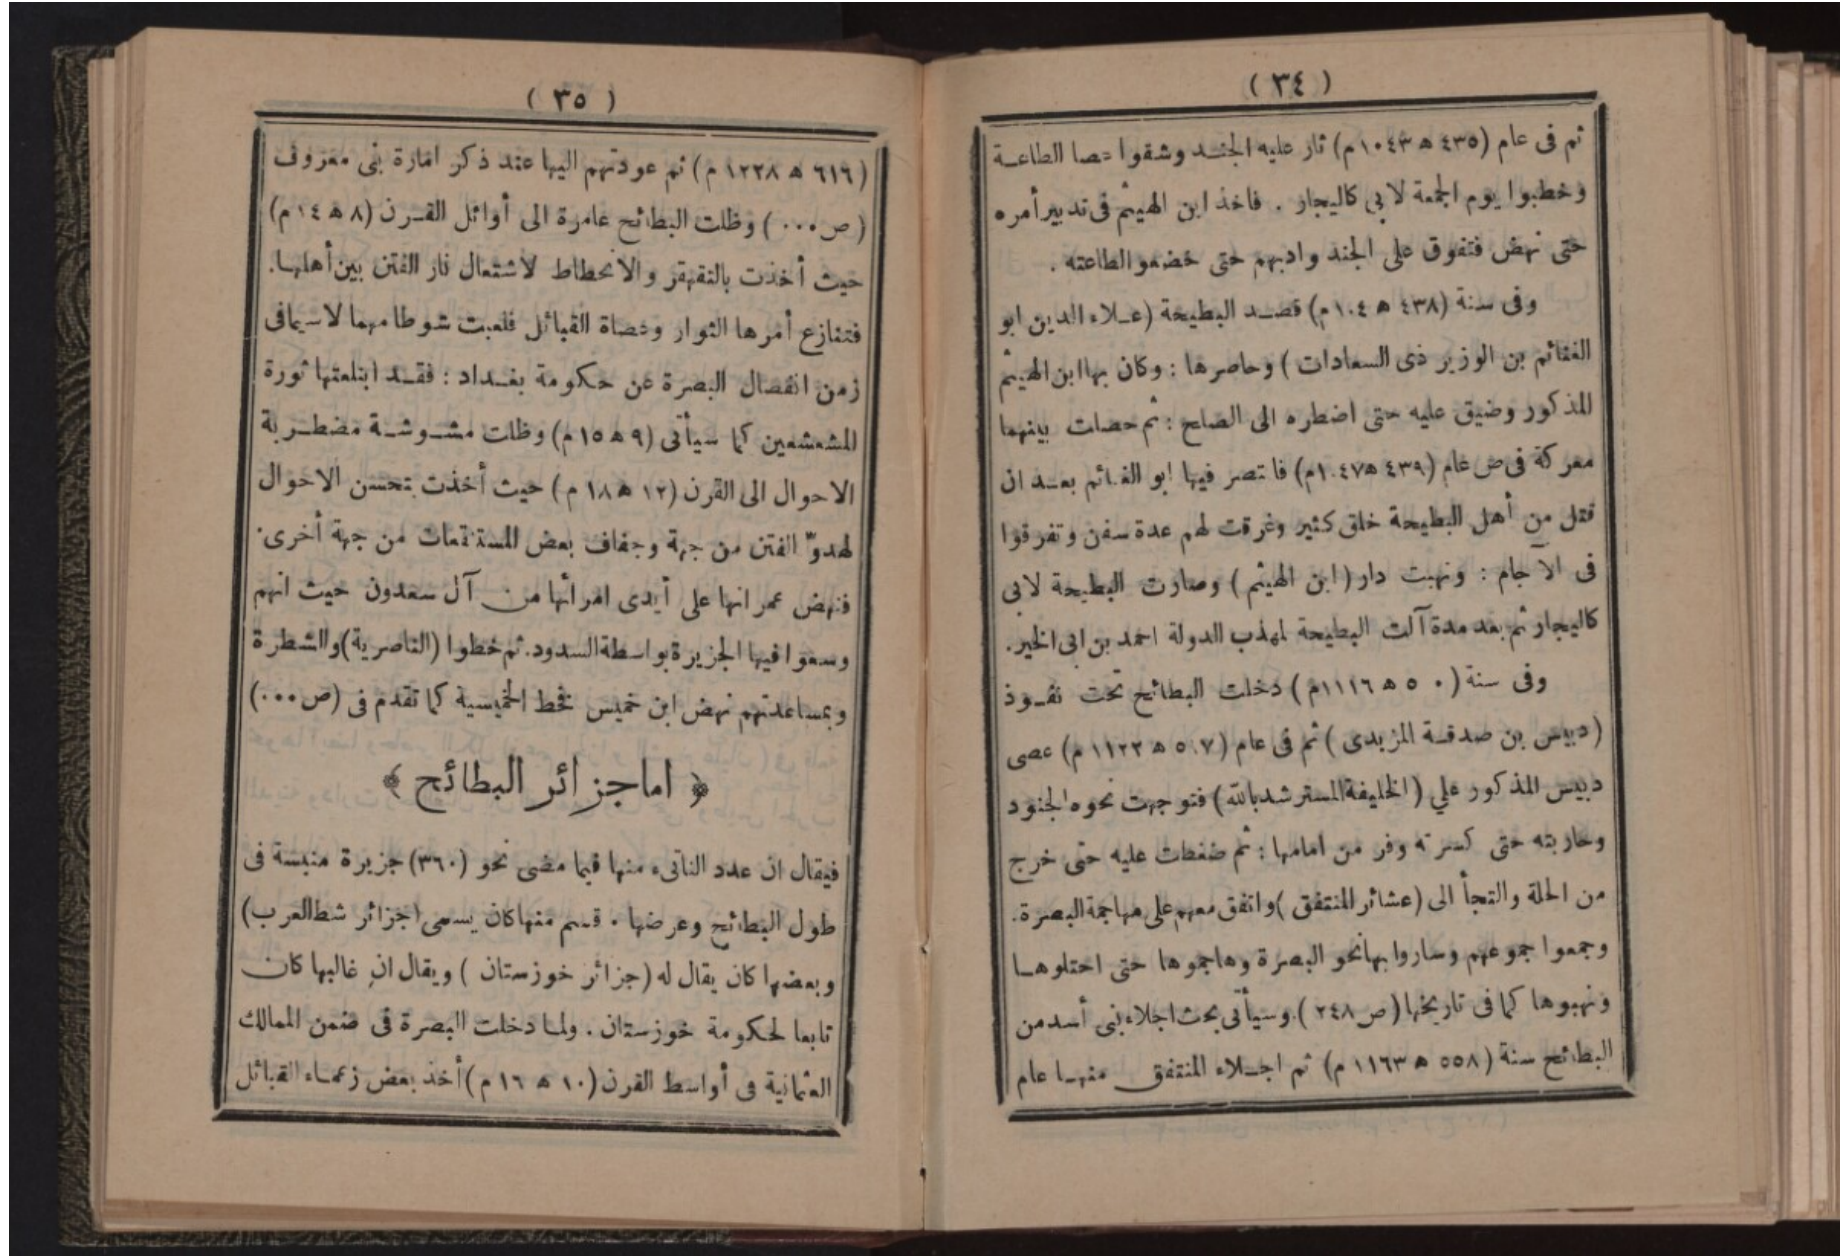 ( ٣٤ )
ثم فى عام (٤٣٥ ه ١٠٤٣ م) ثار عليه الجنـد وشقوا عصا الطاعـة
وخطبوا يوم الجمعة لابى كاليجار . فاخذ ابن الهيثم فى تدبير أمره
حتى نهض فتفوق على الجند وادبهم حتى خضعوا لطاعته .
وفى سنة (٤٣٨ ه ١٠٤ م) قصـد البطيحة (عـلاء الدين ابو
الغنائم بن الوزير ذى السعادات ) وحاصرها : وكان بها ابن الهيثم
المذكور وضيق عليه حتى اضطره الى الصلح : ثم حصلت بينهما
معركة فى عام (٤٣٩ ه ١٠٤٧م) فانتصر فيها ابو الغنائم بعـد ان
قتل من أهل البطيحة خلق كثير وغرقت لهم عدة سفن وتفرقوا
فى الآجام : ونهبت دار (ابن الهيثم ) وصارت البطيحة لابى
كاليجار ثم بعد مدة آلت البطيحة لمهذب الدولة احمد بن ابى الخير.
وفى سنة (٥٠ ه ١١١٦م ) دخلت البطائح تحت نفـوذ
(دبيس بن صدقـة المزيدى ) ثم فى عام (٥٠٧ ه ١١٢٣ م) عصى
دبيس المذكور علي (الخليفة المسترشد بالله) فتوجهت نحوه الجنود
وحاربته حتى كسرته وفر من امامها : ثم ضغطت عليه حتى خرج
من الحلة والتجأ الى (عشائر المنتفق ) واتفق معهم على مهاجمة البصرة.
وجمعوا جموعهم وساروا بها نحو البصرة وهاجموها حتى احتلوهـا
ونهبوها كما فى تاريخها (ص ٢٤٨ ). وسيأتى بحث اجلاء بنى أسد من
البطائح سنة (٥٥٨ ه ١١٦٣ م) ثم اجـلاء المنتفق منهـا عام
( ٣٥ )
(٦١٦ ه ١٢٢٨ م) ثم عودتهم اليها عند ذكر امارة بنى معروف
(ص ٠٠٠ ) وظلت البطائح عامرة الى أوائل القـرن (٨ ه ١٤ م)
حيث أخذت بالتقهقر والانحطاط لاشتعال نار الفتن بين أهلهـا.
فتنازع أمرها الثوار وعصاة القبائل فلعبت شوطا مهما لاسيما فى
زمن انفصال البصرة عن حكومة بغـداد : فقـد ابتلعتها ثورة
المشعشعين كما سيأتى (٩ ه ١٥ م) وظلت مشـوشـة مضطـربة
الاحوال الى القرن (١٢ ه ١٨ م ) حيث أخذت بتحسن الاحوال
لهدوّ الفتن من جهة وجفاف بعض المستنقعات من جهة أخرى.
فنهض عمرانها على أيدى امرائها من آل سعدون حيث انهم
وسعوا فيها الجزيرة بواسطة السدود. ثم خطوا (الناصرية) والشطرة
وبمساعدتهم نهض ابن خميس نخط الخميسية كما تقدم فى (ص ٠٠٠)
﴿ اما جزائر البطائح ﴾
فيقال ان عدد الناتىء منها فيما مضى نحو (٣٦٠) جزيرة منبسة فى
طول البطائح وعرضها . قسم منها كان يسمى (جزائر شط العرب)
وبعضها كان يقال له (جزائر خوزستان ) ويقال ان غالبها كان
تابعا لحكومة خوزستان . ولما دخلت البصرة فى ضمن الممالك
العثمانية فى أواسط القرن (١٠ ه ١٦ م) أخذ بعض زعمـاء القبائل